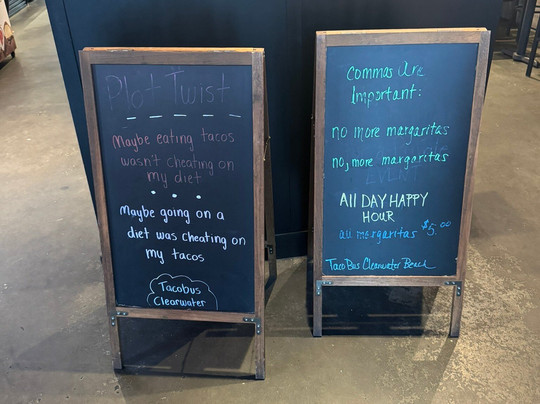 Plot Twist
Maybe eating tacos
wasn't cheating on
my diet
Maybe going on a
diet was cheating on
my tacos
Tacobus
Clearwater
Commas Are
Important:
no more margaritas
no, more margaritas
EVENT
All DAY HAPPY
HOUR
all margaritas $5.00
TacoBus Clearwater Beach